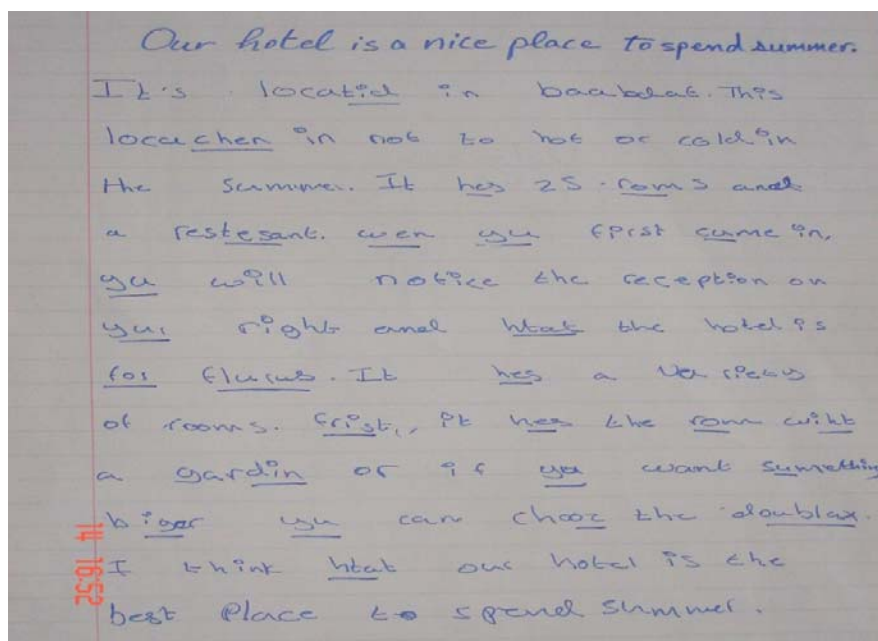 Our hotel is a nice place to spend summer.
It's locatid in baabdat. This
locachen in not to hot or cold in
the summer. It hes 25 roms and
a restesant. wen yu first came in,
yu will notice the reception on
yur right and htat the hotel is
for flurus. It hes a variety
of rooms. frist, it hes the rom wiht
a gardin or if yu want sumething
biger yu can chooc the doublax.
I think htat our hotel is the
best place to spend summer.
14 16:52